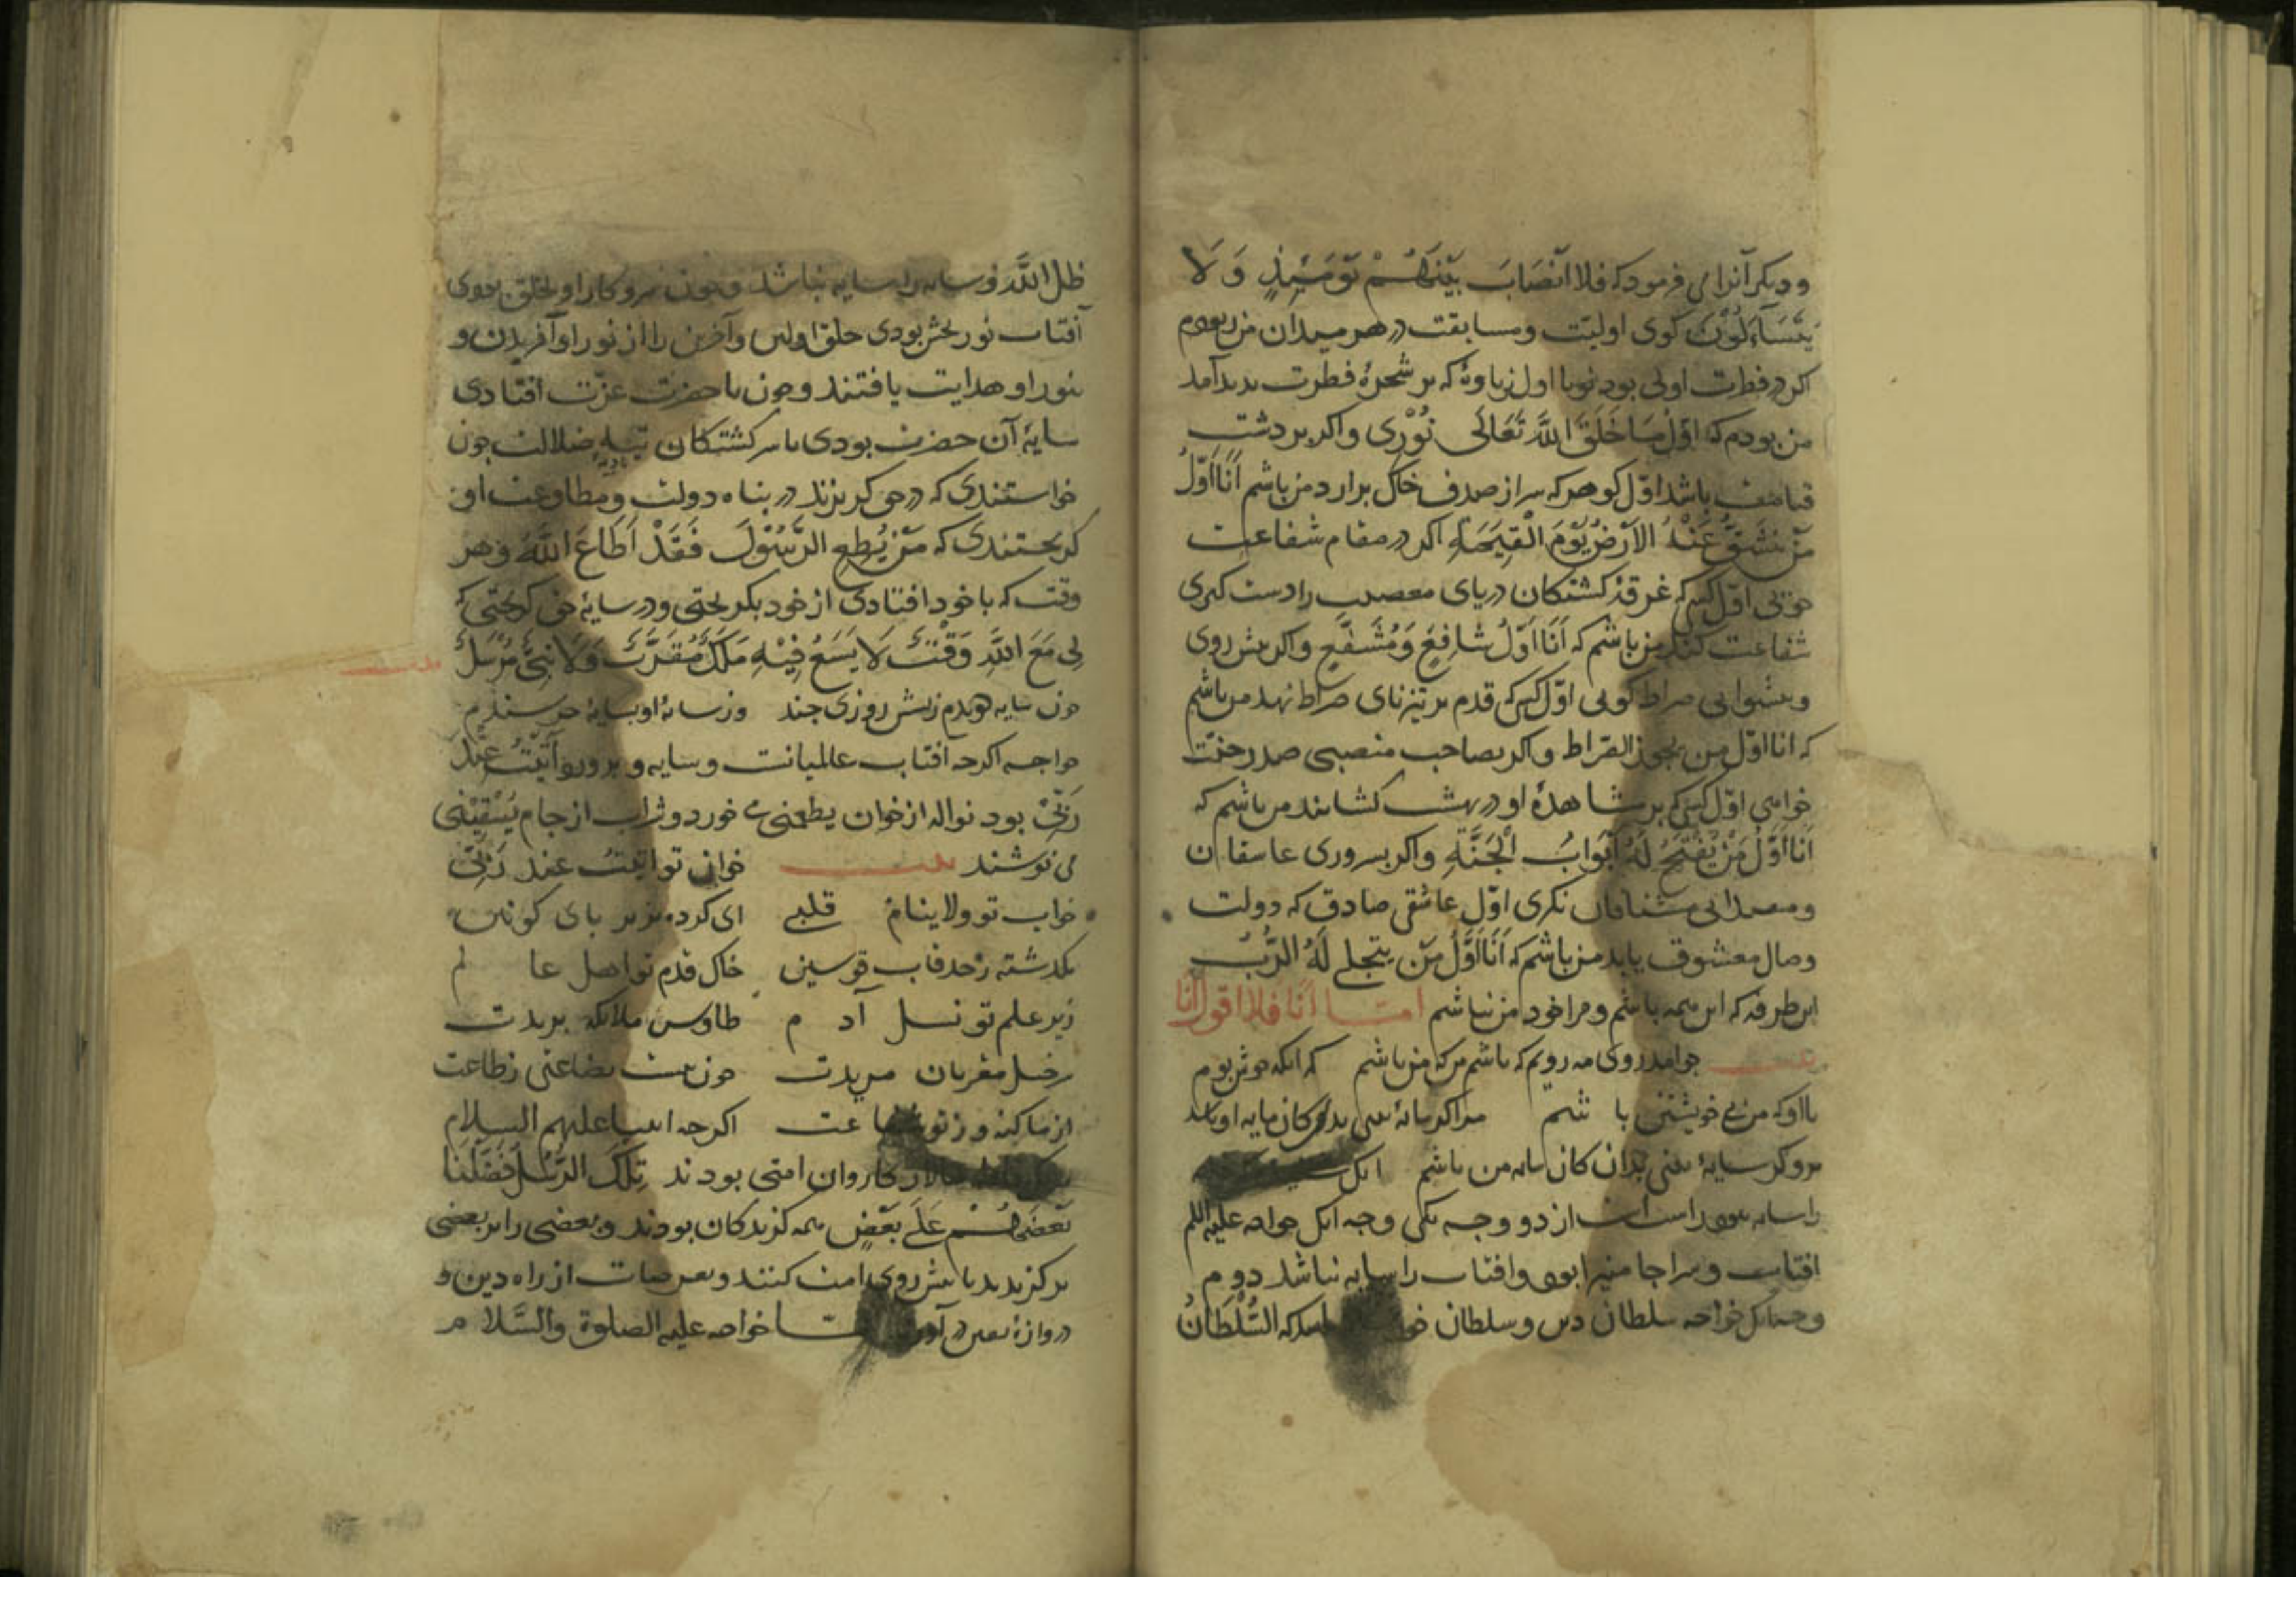 و دیکر آنرا می فرمود که فلا انصَابَ بَیْنَهُمْ یَوْمَئِذٍ وَ لَا
یَتَسَآءَلُوْنَ کوی اولیّت ومسابقت در هر میدان من ربودم
اکر در فطرت اولی بود نوبا اول زباوۀ که بر شجرۀ فطرت بدید آمد
من بودم که اوّلُ مَا خَلَقَ اللهُ تَعَالَی نُوْرِی واکر بر دشت
قیامت باشد اوّل کوهر که سر از صدف خاک برارد من باشم اَنَا اَوَّلُ
مَنْ تَنْشَقُّ عَنْهُ الاَرْضُ یَوْمَ الْقِیٰمَةِ اکر در مقام شفاعت
جویی اوّل کس که غرقه کشتکان دریای معصیت را دست کیری
شفاعت کند من باشم که اَنَا اَوَّلُ شَافِعٍ وَمُشَفَّعٍ واکر بیش روی
و بیشوایی صراط کویی اوّل کس که قدم بر تیزنای صراط نهد من باشم
که انا اوّل من یجوز الصّراط واکر بصاحب منصبی صدر جنّت
خواهی اوّل کس که بر مشاهدۀ او در بهشت کشایند من باشم که
اَنَا اَوَّلُ مَنْ یُفْتَحُ لَهُ اَبْوَابُ الْجَنَّةِ واکر بسروری عاشقان
ومقتدایی مشتاقان نکری اوّل عاشقی صادق که دولت
وصال معشوق یابد من باشم که اَنَا اَوَّلُ مَنْ یتجلی لَهُ الرَّبُّ
این طرفه که این همه باشم و مرا خود من نباشم امّا اَنَا فلا اقول اَنَا
بیت جو آمد روی مه رویم که باشم من که من باشم که انکه خوش بوم
با او که من بی خویشتن باشم مرا کر مایۀ بینی بدان کان مایه او باشد
برو کر سایۀ بینی بدان کان سایه من باشم انک
را سایه نبود راست است از دو وجه یکی وجه انک خواجه علیه السلم
افتاب و سراجا منیرا بود وافتاب را سایه نباشد دوم
وجه انک خواجه سلطان دین وسلطان که السُّلْطَانُ
ظل الله و سایه را سایه نباشد و جون نبرو کار او بخلق بودی
آفتاب نور بخش بودی خلق اولین وآخرین را از نور او آفریدن و
بنور او هدایت یافتند و جون با حضرت عزّت افتادی
سایۀ آن حضرت بودی تا سر کشتکان تیه ضلالت جون
خواستندی که در حق کریزند در بناه دولت ومطاوعت او
کریختندی که مَنْ یُطِعِ الرَّسُوْلَ فَقَدْ اَطَاعَ اللهَ وهر
وقت که با خود افتادی از خود بکریختی ودر سایۀ حق کریختی که
لِی مَعَ اللهِ وَقْتٌ لَا یَسَعُ فِیْهِ مَلَکٌ مُقَرَّبٌ وَلَا نَبِیٌّ مُرْسَلٌ
بیت
جون سایه دویدم زبش روزی جند وز سایۀ او بسایۀ خرسندم
خواجه اکرجه افتاب عالمیانست وسایه و برورد اَبِیْتُ عِنْدَ
رَبِّیْ بود نواله از خوان یطعمنی خورد وشراب از جام یَسْقِیْنِی
می نوشند بیت خوان تو ابیتُ عند رَبِّی
خواب تو ولا ینام قلبی ای کرده بزیر بای کونین
بکدشته زحد قاب قوسین خاک قدم تو اهل عالم
زیر علم تو نسل آدم طاوس ملائکه بریدت
رخیل مقربان مریدت جون نیست بضاعتی زطاعت
از ما کنه و زتو شفاعت اکرجه انبیا علیهم السلام
سالار کاروان امتی بودند تِلْکَ الرُّسُلُ فَضَّلْنَا
بَعْضَهُمْ عَلَی بَعْضٍ همه کزیدکان بودند وبعضی را بر بعضی
برکزیدند تا بیش روی امت کنند وبعرصات از راه دین و
دروازۀ یقین در خواجه علیه الصلوة والسَّلام